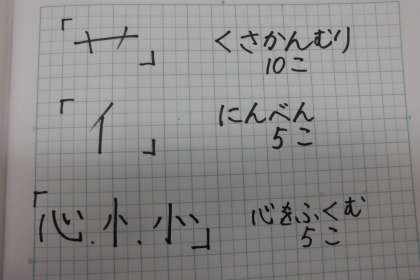 「艹」 くさかんむり
10こ
「亻」 にんべん
5こ
「心.忄.㣺」 心をふくむ
5こ